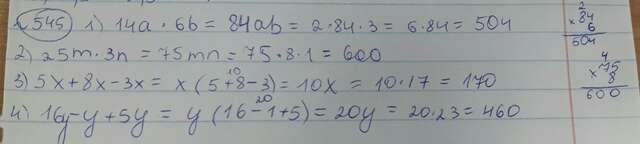 545 1) 14a · 6b = 84ab = 2 · 84 · 3 = 6 · 84 = 504
2) 25m · 3n = 75mn = 75 · 8 · 1 = 600
3) 5x + 8x - 3x = x (5 + 8 - 3) = 10x = 10 · 17 = 170
10
4) 16y - y + 5y = y (16 - 1 + 5) = 20y = 20 · 23 = 460
20
2
× 84
6
504
4
× 75
8
600